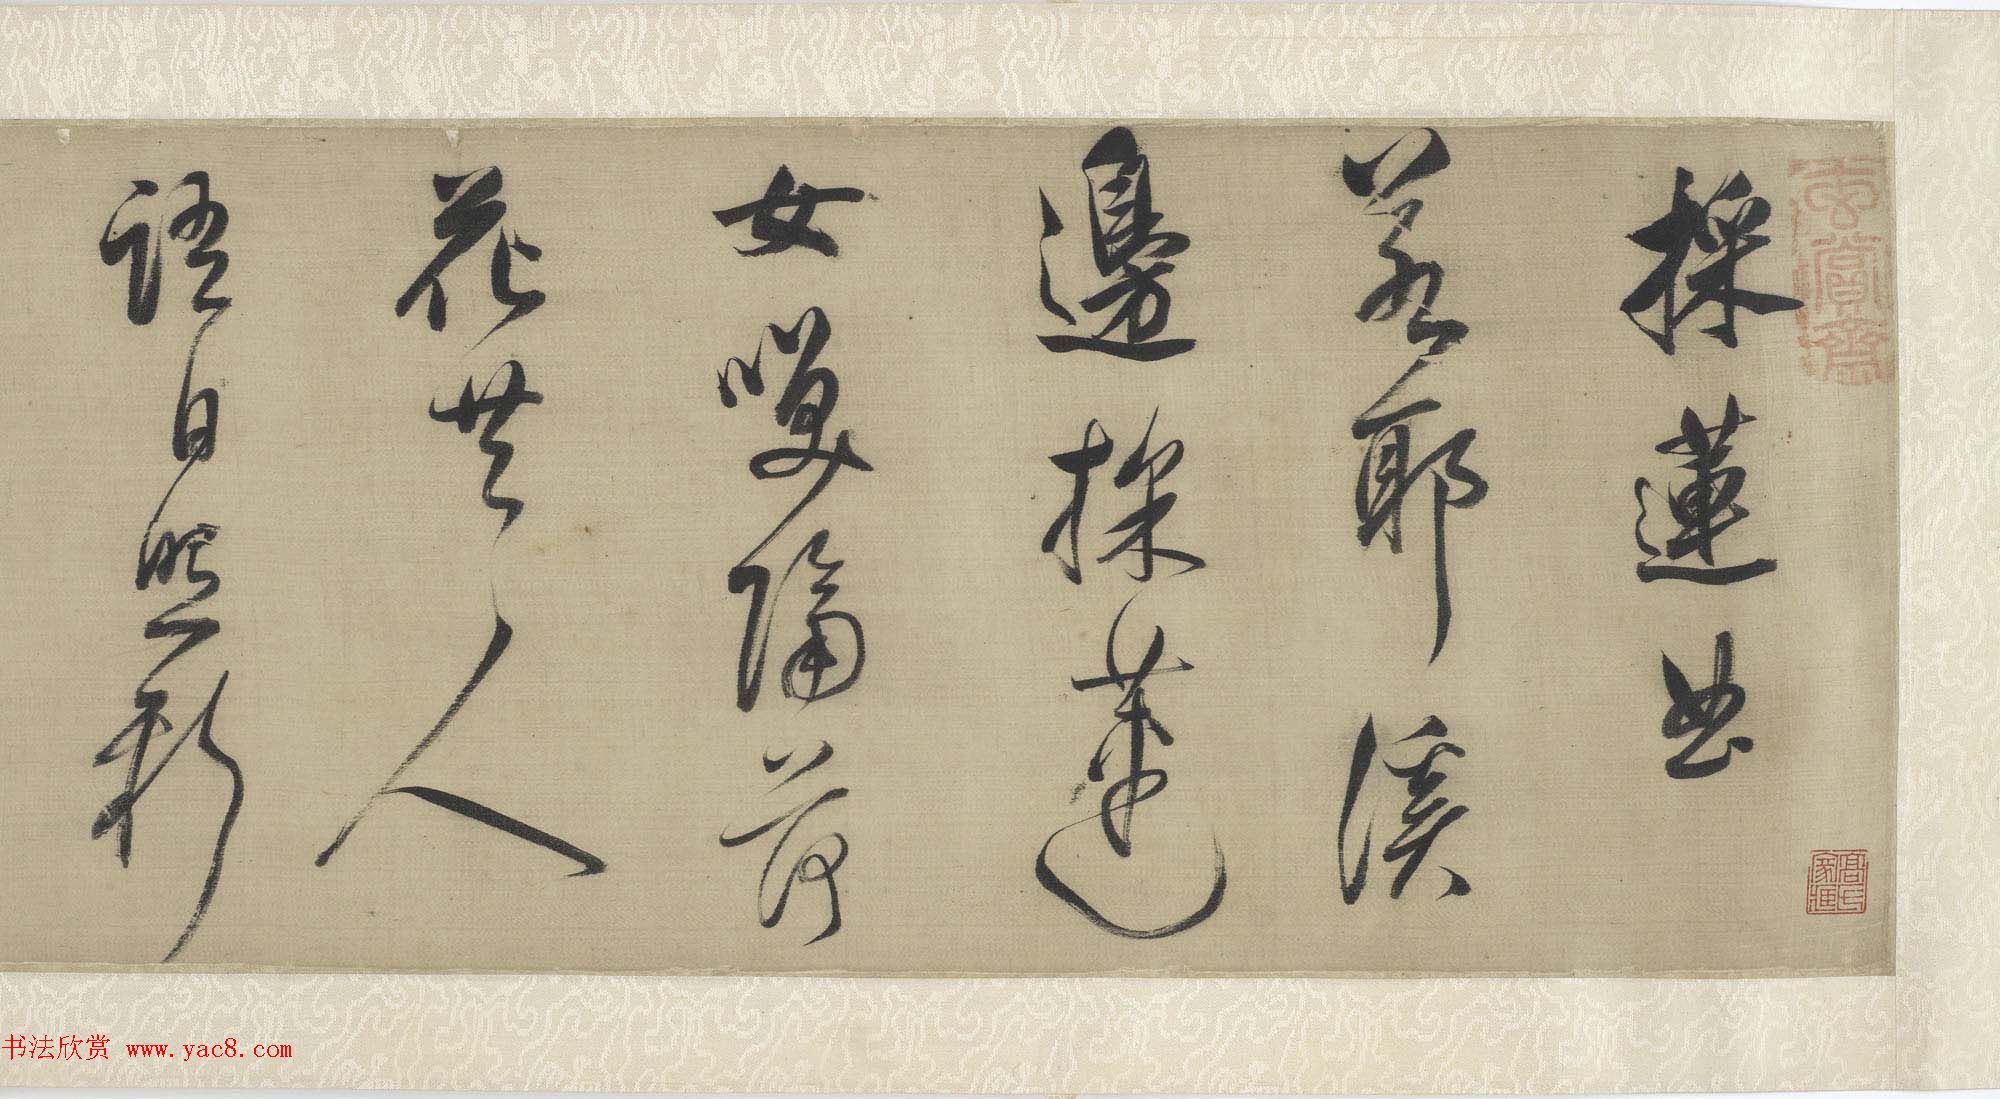 採蓮曲
若耶溪
邊採蓮
女嘆隔荷
花共人
語日照新
玄賞齋
高氏家藏
书法欣赏 www.yac8.com